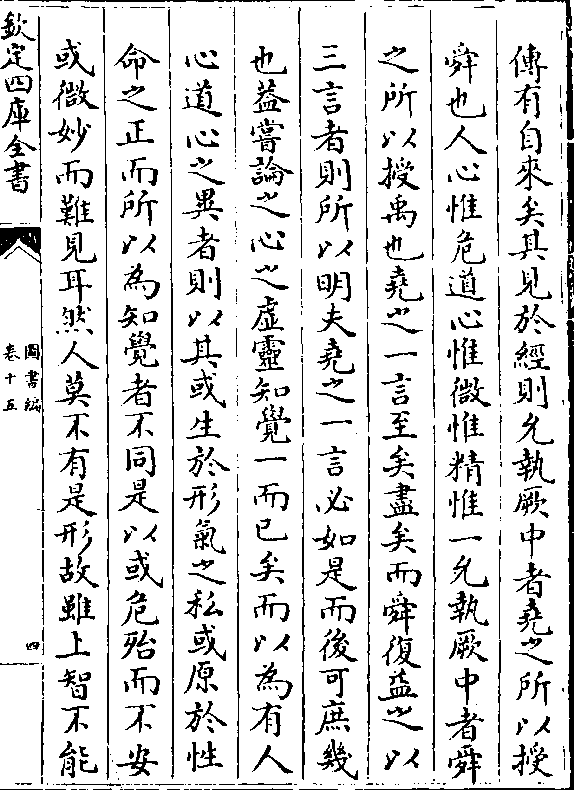 傳有自來矣其見於經則允執厥中者堯之所以授
舜也人心惟危道心惟微惟精惟一允執厥中者舜
之所以授禹也堯之一言至矣盡矣而舜復益之以
三言者則所以明夫堯之一言必如是而後可庶幾
也葢嘗論之心之虛靈知覺一而已矣而以為有人
心道心之異者則以其或生於形氣之私或原於性
命之正而所以為知覺者不同是以或危殆而不安
或微妙而難見耳然人莫不有是形故雖上智不能
欽定四庫全書
圖書編
卷十五
四